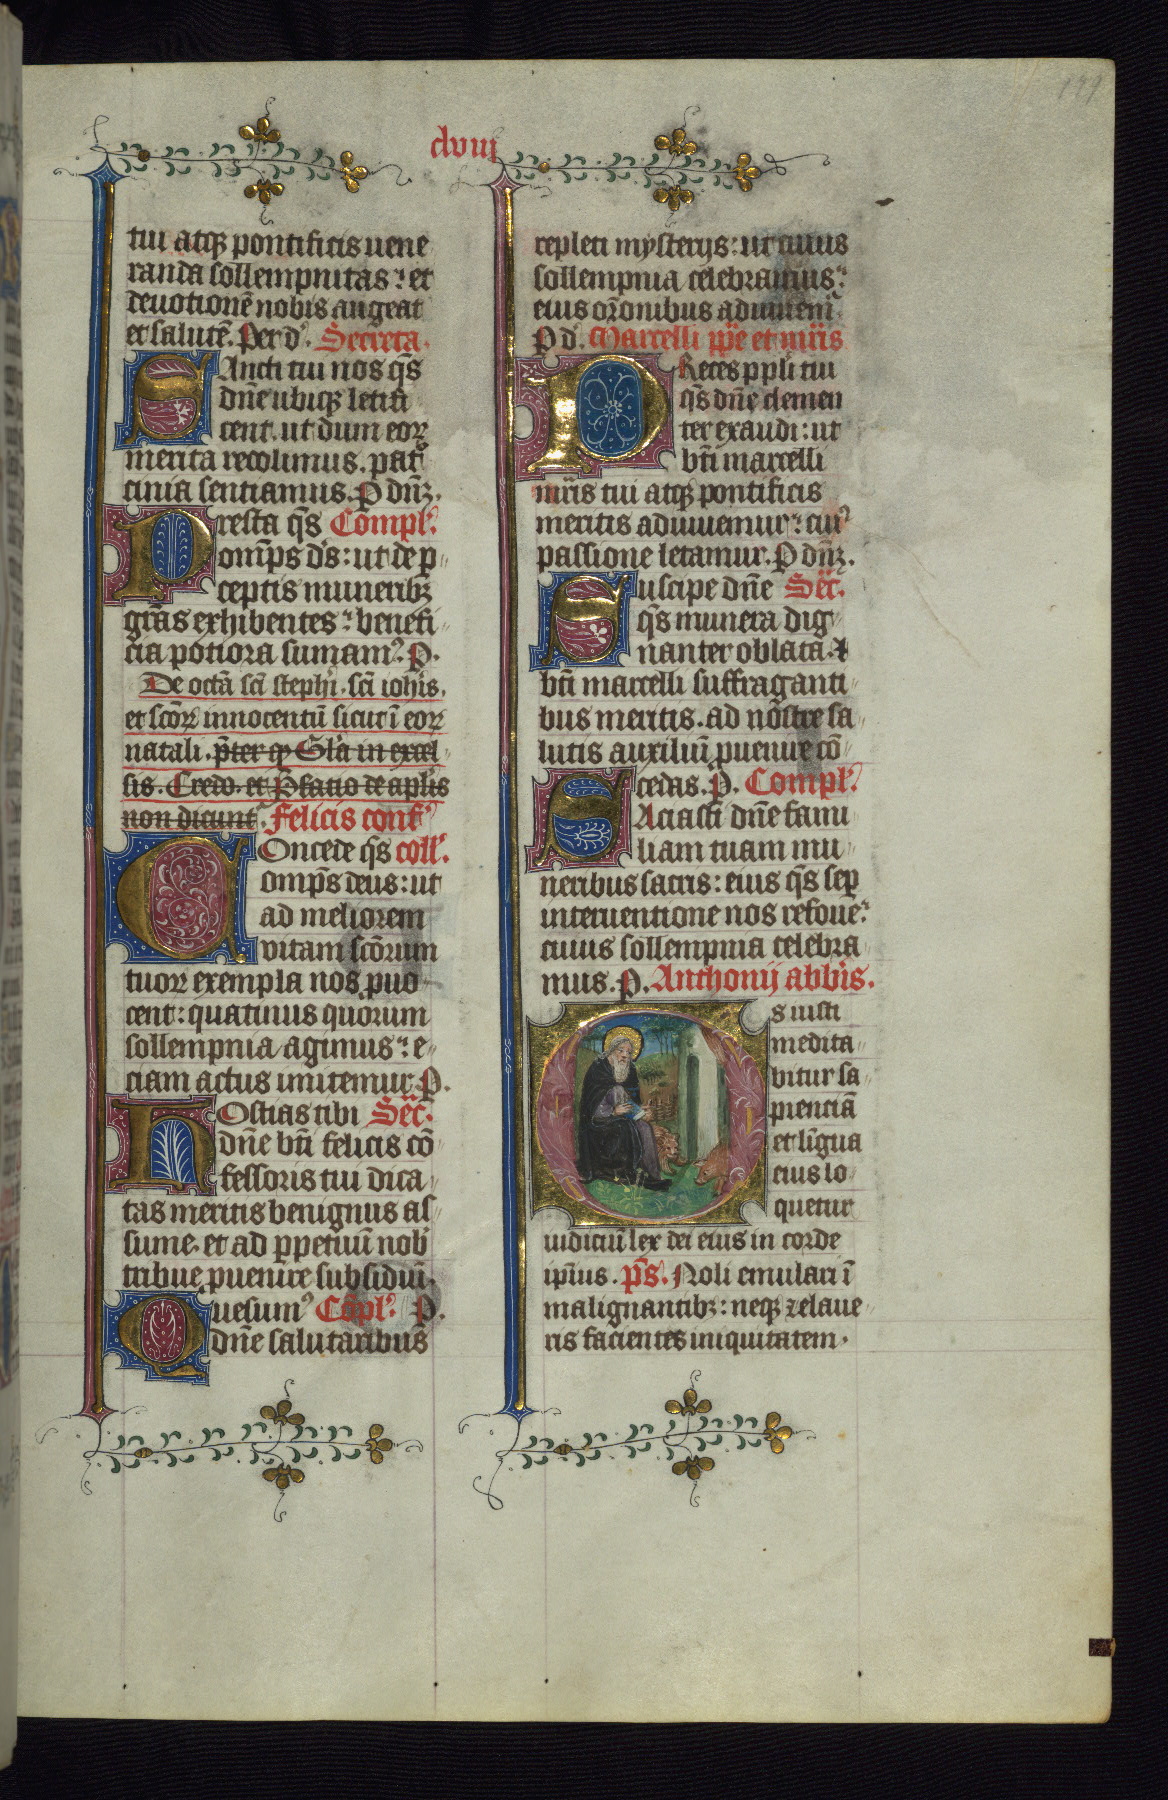 clviij
tui atq̄ pontificis uene
randa sollempnitas: et
deuotionē nobis augeat
et salutē. Per d. Secreta.
Sancti tui nos q̄s
dn̄e ubiq̄ letifi
cent. ut dum eoꝝ
merita recolimus. patͦ
cinia sentiamus. P dn̄ꝫ.
Presta q̄s Complꝰ.
omp̄s ds̄: ut de p
ceptis muneribꝫ
gr̄as exhibentes: benefi
cia potiora sumamꝰ. P.
De octā sc̄i steph̄i. sc̄i ioh̄is.
et sc̄oꝝ innocentū sicut ī eoꝝ
natali. p̄ter qꝫ Gl̄a in excel
sis. Credo. et P̄fatio de apl̄is
non dicunt᷑. Felicis confꝰ
Concede q̄s collꝰ.
omp̄s deus: ut
ad meliorem
vitam sc̄orum
tuoꝝ exempla nos ꝓuo
cent: quatinus quorum
sollempnia agimus: e
ciam actus imitemur. P.
Hostias tibi Sec̄.
dn̄e bt̄i felicis cō
fessoris tui dica
tas meritis benignus as
sume. et ad ꝑpetuū nob̄
tribue ꝓuenire subsidiū.
Quesumꝰ Cōplꝰ. P.
dn̄e salutaribus
repleti mysterijs: ut cuius
sollempnia celebramus:
eius or̄onibus adiuuem᷑.
P d. Marcelli pp̄e et mr̄is
Preces pp̄li tui
q̄s dn̄e clemen
ter exaudi: ut
bt̄i marcelli
mr̄is tui atq̄ pontificis
meritis adiuuemur: cuiꝰ
passione letamur. P dn̄ꝫ.
Suscipe dn̄e Sec̄.
q̄s munera dig
nanter oblata. ⁊
bt̄i marcelli suffraganti
bus meritis. ad nostre sa
lutis auxiliū ꝓuenire cō
cedas. P. Complꝰ.
Saciasti dn̄e famu
liam tuam mu
neribus sacris: eius q̄s sep̄
interuentione nos refoue:
cuius sollempnia celebra
mus. P. Anthonij abb̄is.
Os iusti
medita
bitur sa
pienciā
et lingua
eius lo
quetur
iudiciū lex dei eius in corde
ipīus. ps̄. Noli emulari ī
malignantibꝫ: neqꝫ zelaue
ris facientes iniquitatem.